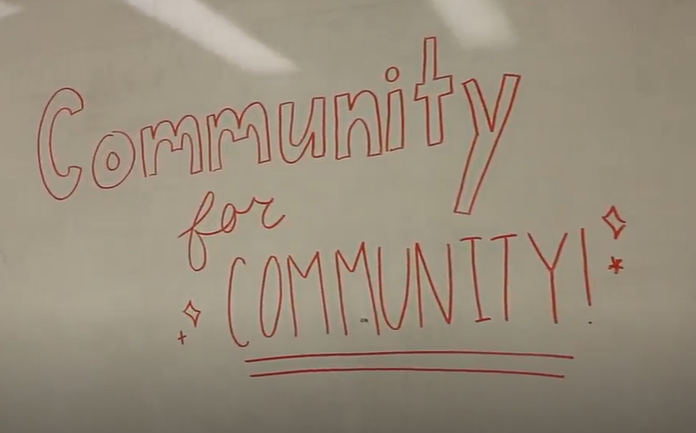 Community
for
COMMUNITY!